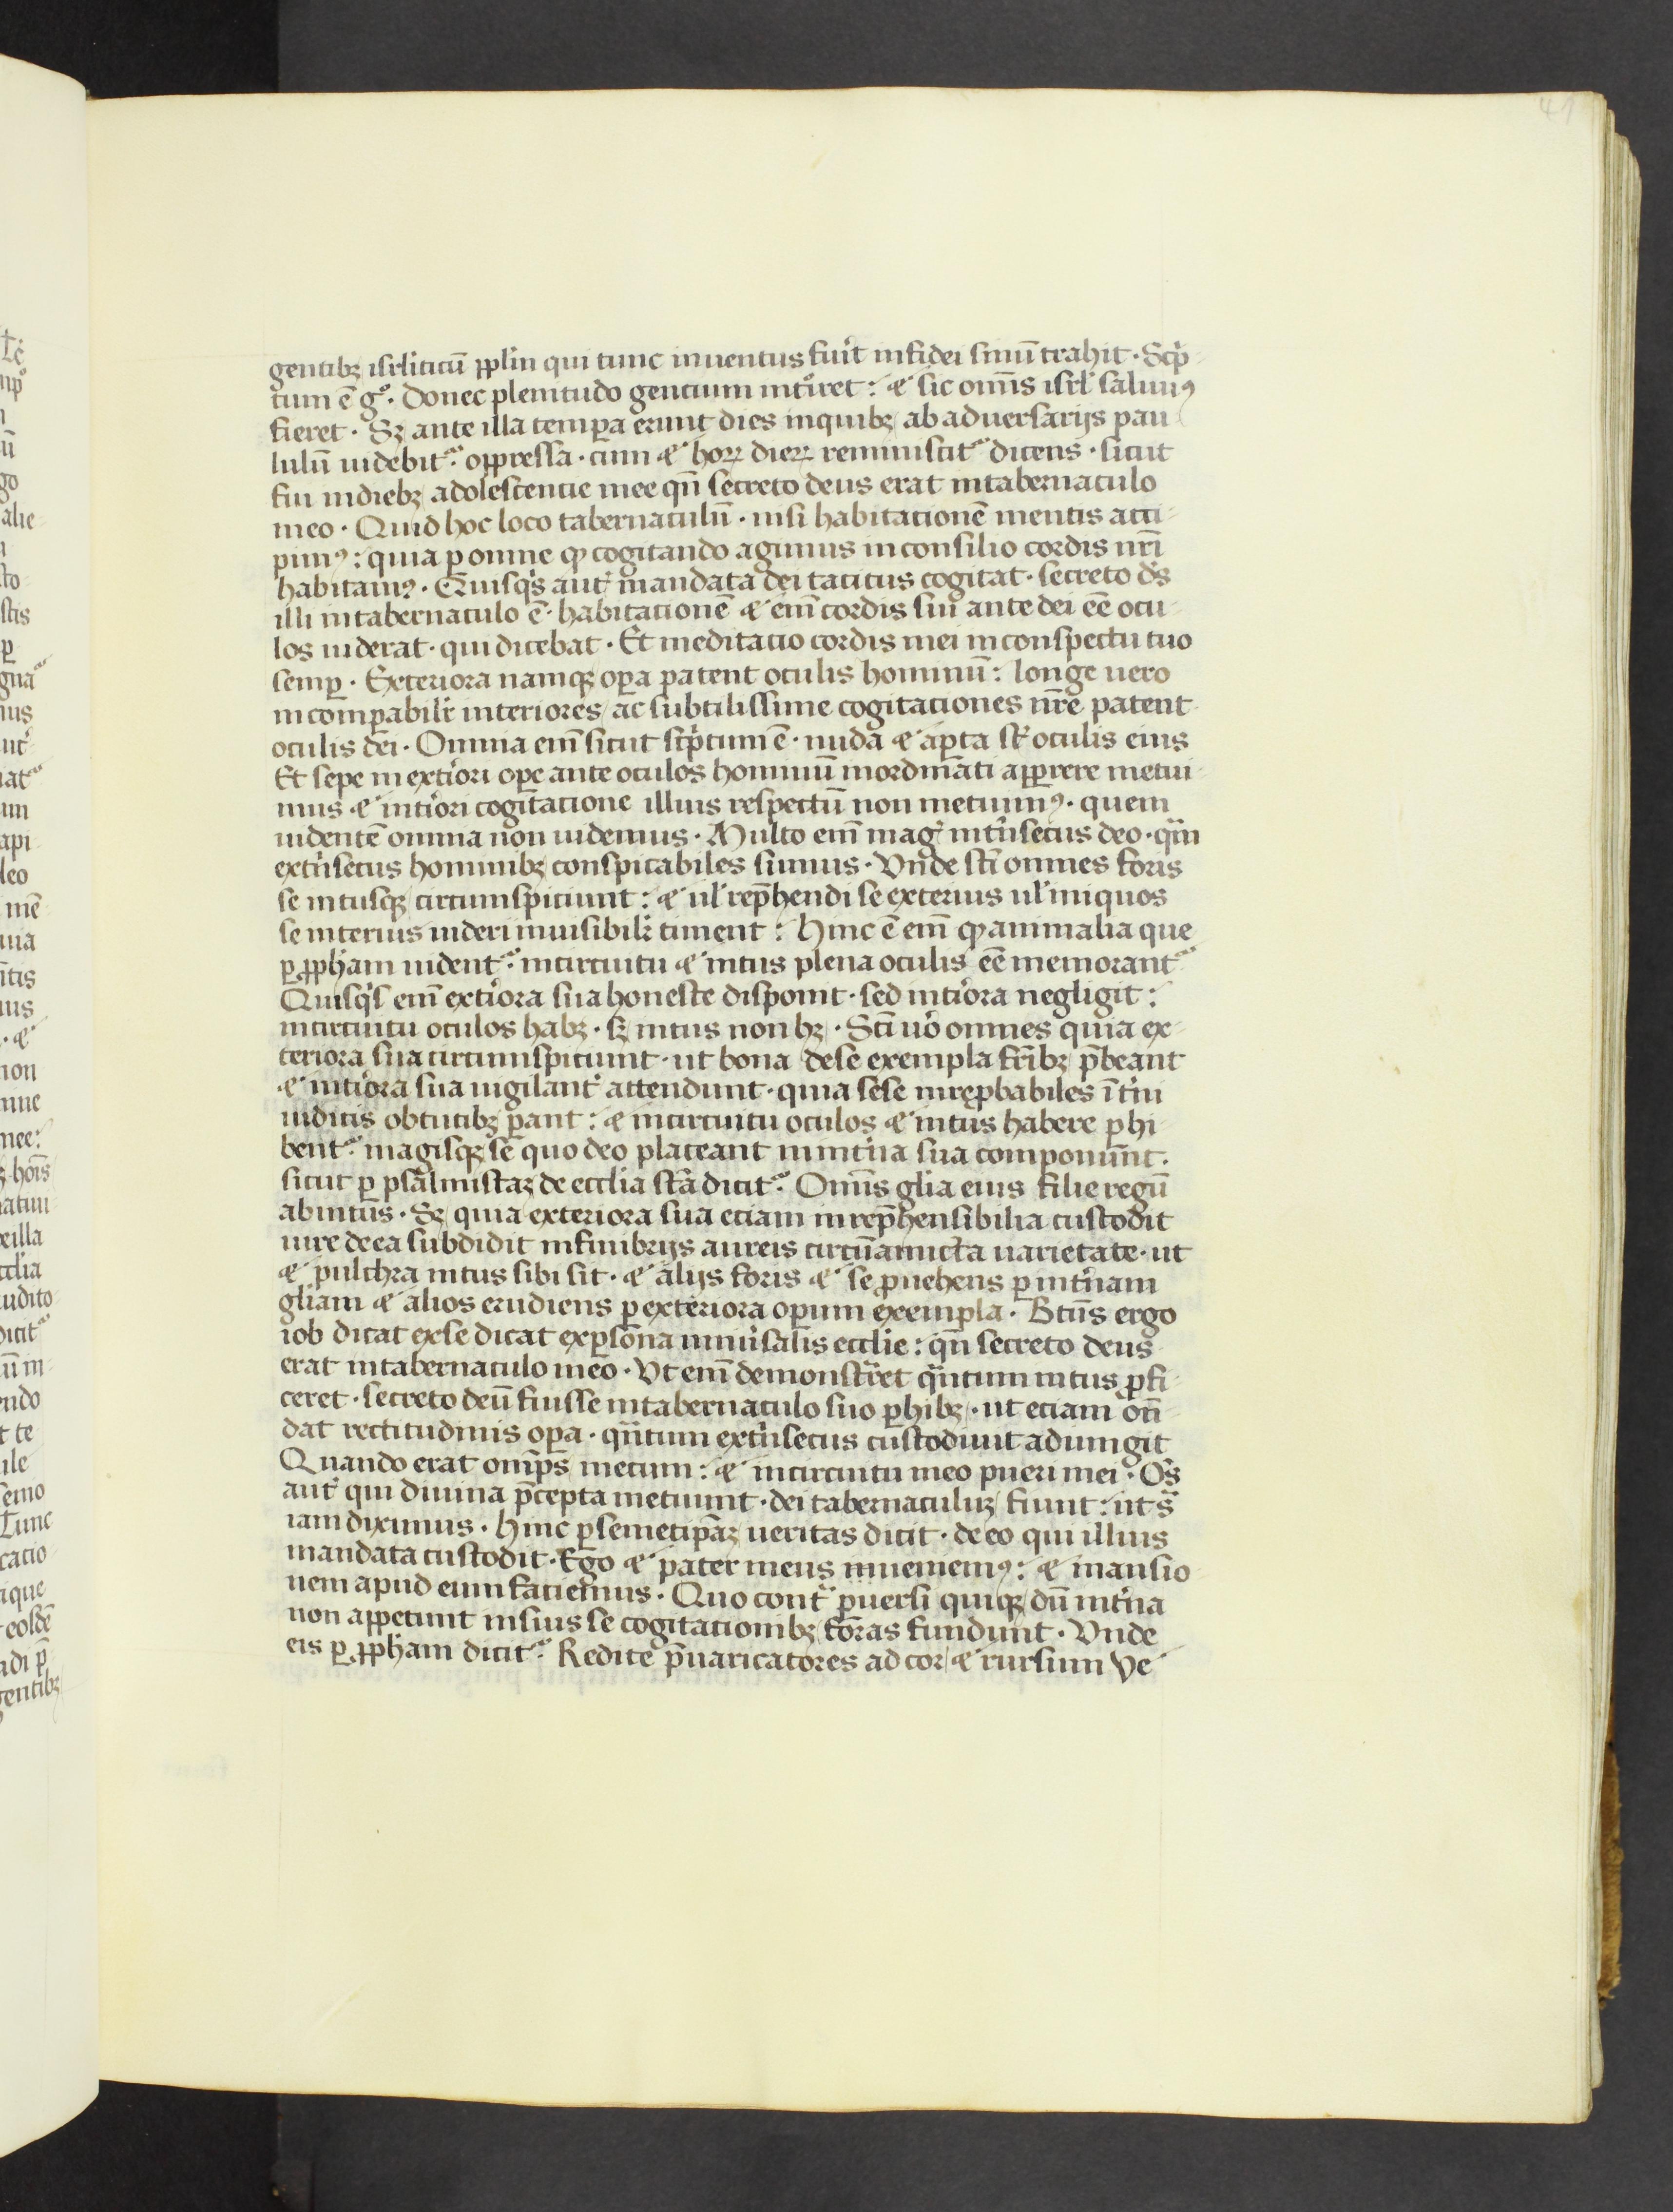 41
gentibꝫ isrl̾iticū ppl̾m qui tunc inuentus fuīt in fidei sinū trahit · Scp̾
tum ē gͦ · donec plenitudo gentium int̾iret : ⁊ sic om̄s isrl̾ saluus
fieret · Sꝫ ante illa tempa erunt dies in quibꝫ ab aduersarijs pau
lulū uidebit᷑ oppressa · cum ⁊ hoꝝ dieꝝ reminiscit᷑ dicens · sicut
fui in diebꝫ adolescencie mee qn̄ secreto deus erat in tabernaculo
meo · Quid hoc loco tabernaculū · nisi habitacionē mentis acci
pimꝰ : quia p omne qꝫ cogitando agimus in consilio cordis nr̄i
habitamꝰ · Quisqͥs aut̾ mandata dei tacitus cogitat · secreto ds̄
illi in tabernaculo ē · habitacionē ⁊ em̄ cordis sui ante dei eē ocu
los uiderat · qui dicebat · Et meditacio cordis mei in conspectu tuo
semꝑ · Exteriora namqꝫ oꝑa patent oculis hominū : longe uero
incomꝑabilr̄ interiores ac subtilissime cogitaciones nr̄e patent
oculis dei · Omnia em̄ sicut scp̾tum ē · nuda ⁊ aꝑta st̄ oculis eius
Et sepe in ext̾iori oꝑe ante oculos hominū inordinati apꝑere metui
mus ⁊ int̾iori cogitacione illius respectū non metuimꝰ · quem
uidentē omnia non uidemus · Multo em̄ mag̾ int̾nsecus deo · qͣm
ext̾nsecus hominibꝫ conspicabiles sumus · Vnde sc̄i omnes foris
se intusqꝫ circumspiciunt : ⁊ ul̾ rep̄hendi se exterius ul̾ iniquos
se interius uideri inuisibilr̄ timent : Hinc ē em̄ qꝫ animalia que
ꝑ ꝓpham uident᷑ in circuitu ⁊ intus plena oculis eē memorant᷑
Quisqͥs em̄ ext̾iora sua honeste disponit · sed int̾iora negligit :
in circuitu oculos habꝫ · sꝫ intus non hꝫ · Sc̄i uͦo omnes quia ex
teriora sua circumspiciunt · ut bona de se exempla fr̄ibꝫ p̄beant
⁊ int̾iora sua uigilant̾ attendunt · quia sese inrepͦbabiles īt̾ni
iudicis obtutibꝫ ꝑant : ⁊ in circuitu oculos ⁊ intus habere ꝑhi
bent᷑ magisqꝫ se quo deo placeant in int̾na sua componunt ·
sicut ꝑ psalmistaꝫ de eccl̾ia sc̄a dicit᷑ Om̄is gl̾ia eius filie regū
ab intus · Sꝫ quia exteriora sua eciam inrep̄hensibilia custodit
iure de ea subdidit in fimbrijs aureis circūamicta uarietate · ut
⁊ pulchra intus sibi sit · ⁊ alijs foris ⁊ se ꝓuehens ꝑ int̾nam
gl̾iam ⁊ alios erudiens ꝑ exteriora oꝑum exempla · Btūs ergo
iob dicat ex se dicat ex ꝑsona uniu̾salis eccl̾ie : qn̄ secreto deus
erat in tabernaculo meo · Vt em̄ demonstͣret qͣntum intus ꝓfi
ceret · secreto deū fuisse in tabernaculo suo ꝑhibꝫ · ut eciam on̄
dat rectitudinis oꝑa · qͣntum ext̾nsecus custodiuit adiungit
Quando erat omp̄s mecum : ⁊ in circuitu meo pueri mei · Oͥs
aut̾ qui diuina p̄cepta metuunt · dei tabernaculuꝫ fiunt : ut sͣ
iam diximus · Hinc ꝑ semetipsaꝫ ueritas dicit · de eo qui illius
mandata custodit · Ego ⁊ pater meus inueniemꝰ : ⁊ mansio
nem apud eum faciemus · Quo contͣ ꝑuersi quiqꝫ dū int̾na
non appetunt in suis se cogitacionibꝫ foras fundunt · Vnde
eis ꝑ ꝓpham dicit᷑ Redite p̄uaricatores ad cor ⁊ rursum Ve